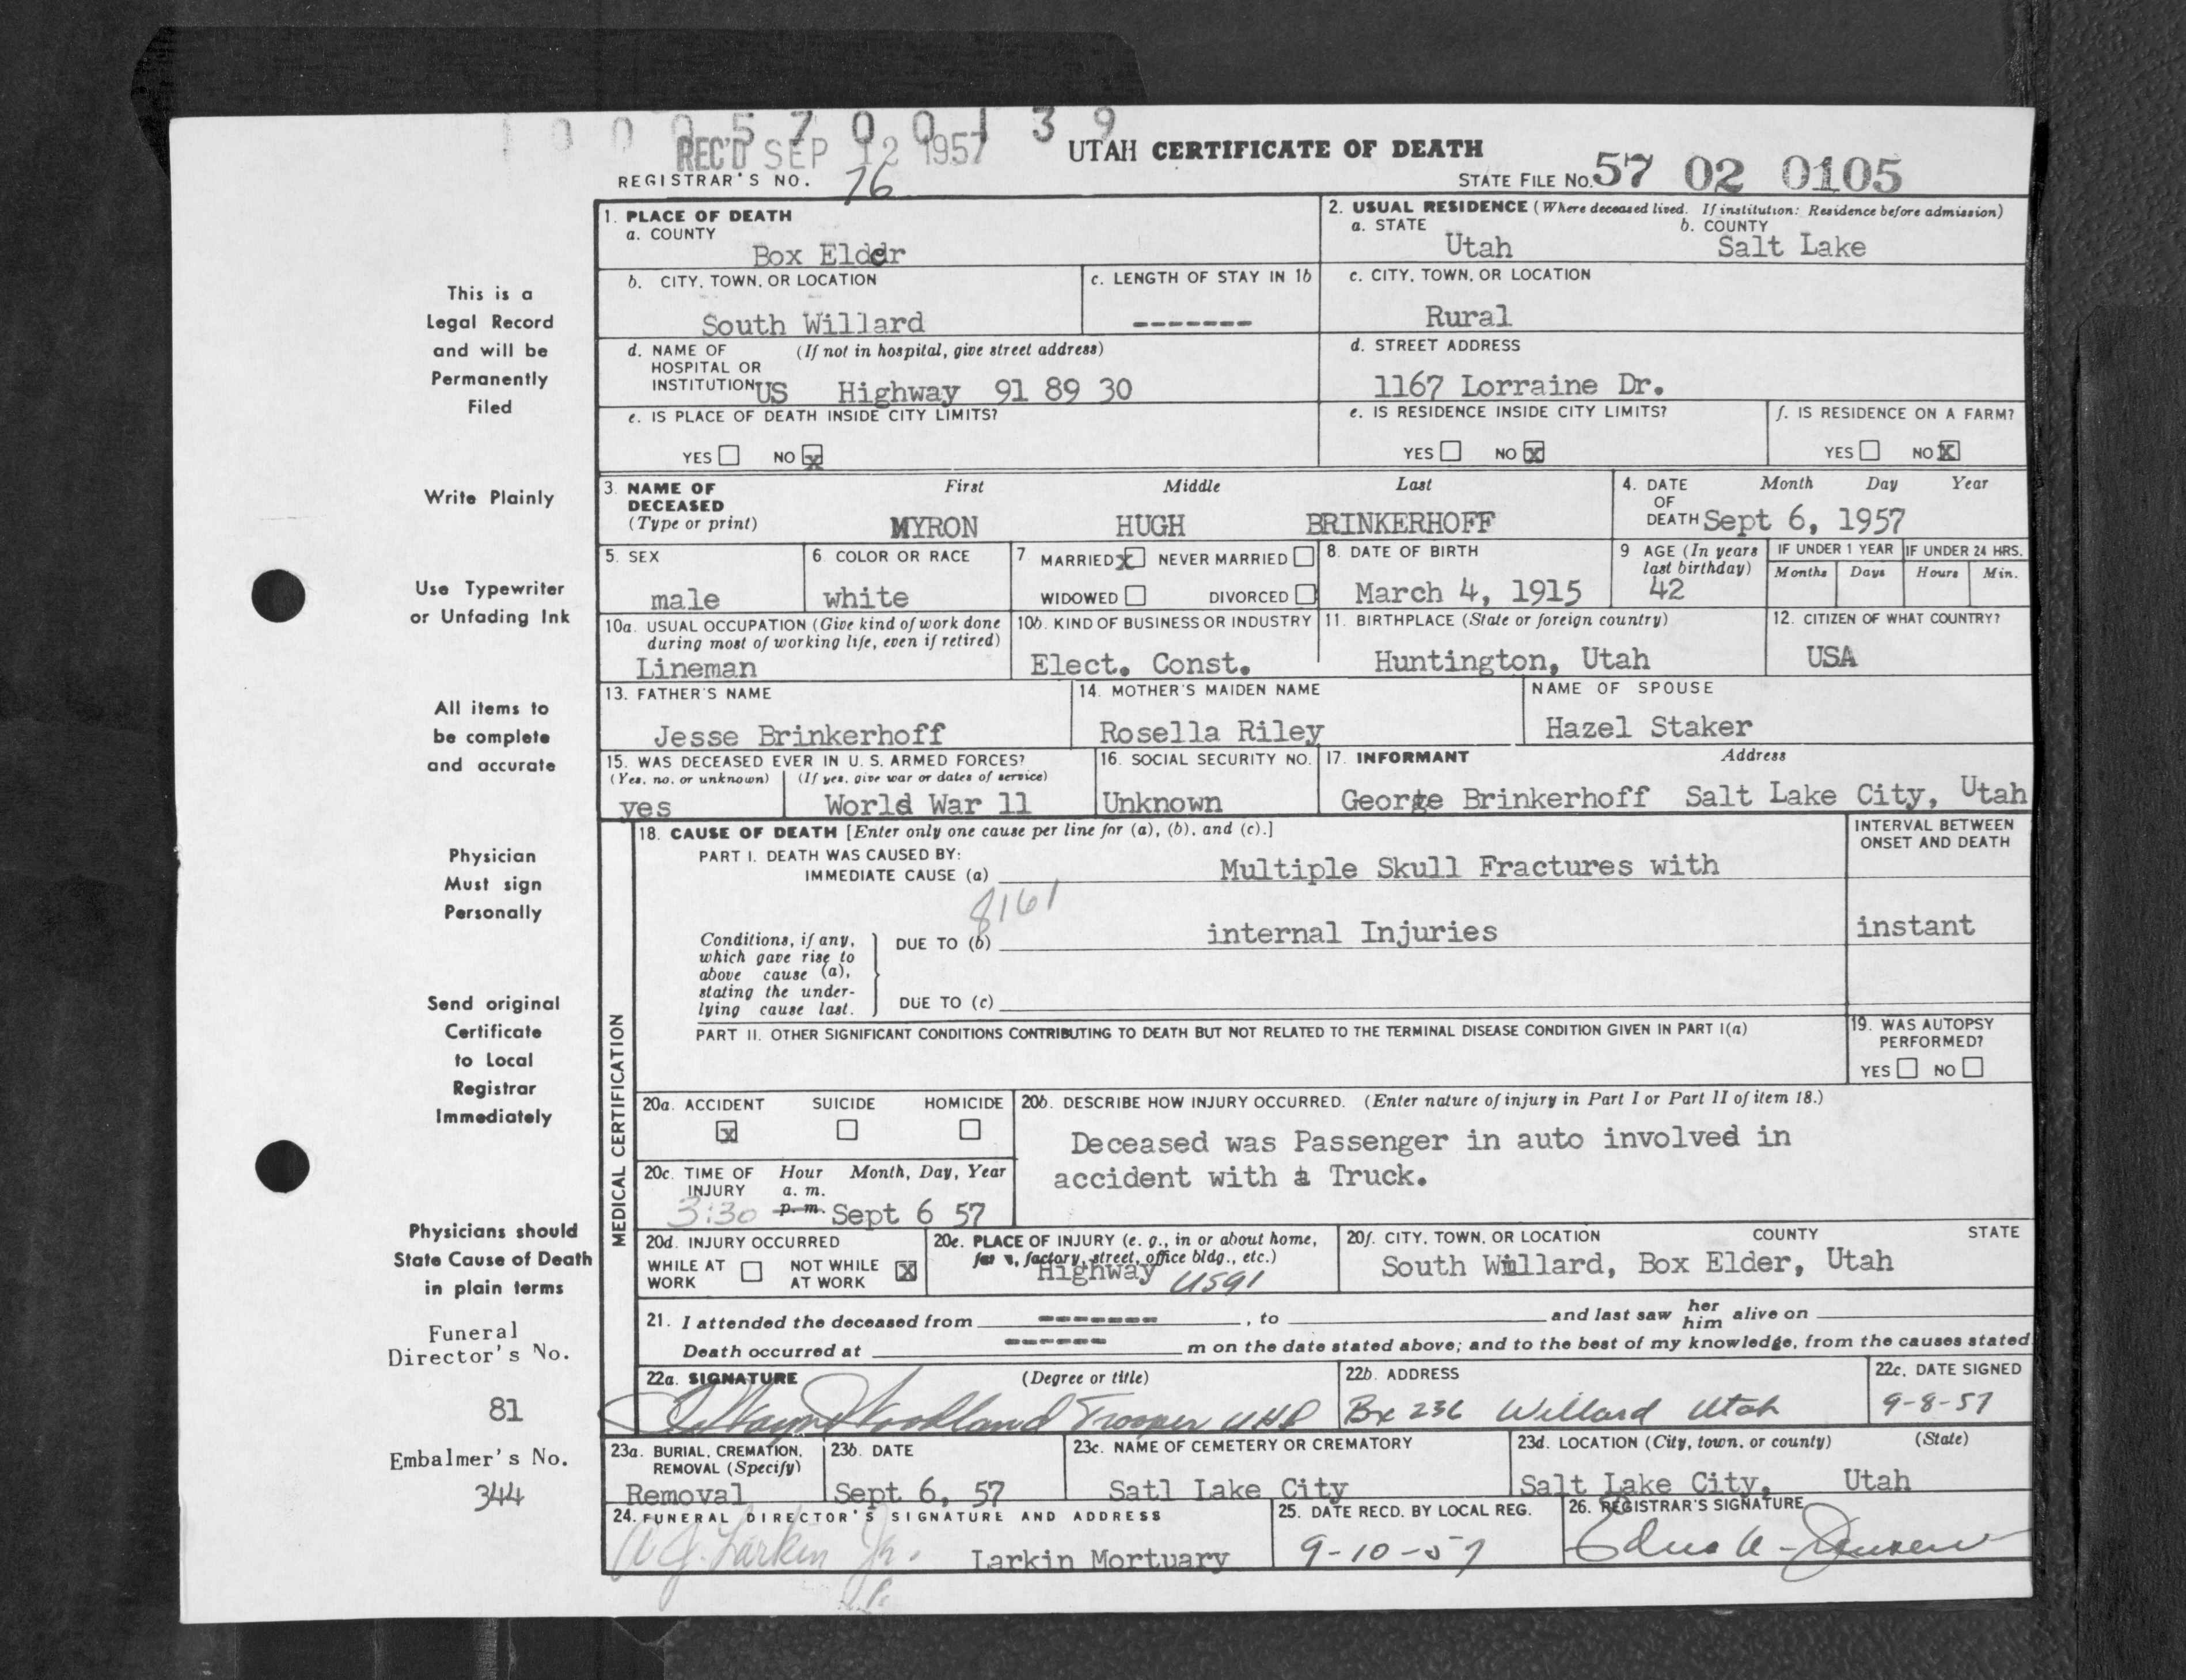 1 0 0 0 5 7 0 0 1 3 9
REC'D SEP 12 1957
UTAH CERTIFICATE OF DEATH
REGISTRAR'S NO. 76
STATE FILE NO. 57 02 0105
1. PLACE OF DEATH
a. COUNTY
Box Elder
2. USUAL RESIDENCE (Where deceased lived. If institution: Residence before admission)
a. STATE b. COUNTY
Utah Salt Lake
b. CITY, TOWN, OR LOCATION
South Willard
c. LENGTH OF STAY IN 1b
-------
c. CITY, TOWN, OR LOCATION
Rural
d. NAME OF (If not in hospital, give street address)
HOSPITAL OR
INSTITUTION US Highway 91 89 30
d. STREET ADDRESS
1167 Lorraine Dr.
e. IS PLACE OF DEATH INSIDE CITY LIMITS?
YES NO X
e. IS RESIDENCE INSIDE CITY LIMITS?
YES NO X
f. IS RESIDENCE ON A FARM?
YES NO X
3. NAME OF First Middle Last
DECEASED
(Type or print) MYRON HUGH BRINKERHOFF
4. DATE Month Day Year
OF
DEATH Sept 6, 1957
5. SEX
male
6. COLOR OR RACE
white
7 MARRIED X NEVER MARRIED
WIDOWED DIVORCED
8. DATE OF BIRTH
March 4, 1915
9 AGE (In years
last birthday)
42
IF UNDER 1 YEAR IF UNDER 24 HRS.
Months Days Hours Min.
10a. USUAL OCCUPATION (Give kind of work done
during most of working life, even if retired)
Lineman
10b. KIND OF BUSINESS OR INDUSTRY
Elect. Const.
11. BIRTHPLACE (State or foreign country)
Huntington, Utah
12. CITIZEN OF WHAT COUNTRY?
USA
13. FATHER'S NAME
Jesse Brinkerhoff
14. MOTHER'S MAIDEN NAME
Rosella Riley
NAME OF SPOUSE
Hazel Staker
15. WAS DECEASED EVER IN U. S. ARMED FORCES?
(Yes, no, or unknown) (If yes, give war or dates of service)
yes World War 11
16. SOCIAL SECURITY NO.
Unknown
17. INFORMANT Address
George Brinkerhoff Salt Lake City, Utah
MEDICAL CERTIFICATION
18. CAUSE OF DEATH [Enter only one cause per line for (a), (b), and (c).]
PART I. DEATH WAS CAUSED BY:
IMMEDIATE CAUSE (a) Multiple Skull Fractures with
8161
Conditions, if any,
which gave rise to
above cause (a),
stating the under-
lying cause last.
DUE TO (b) internal Injuries
DUE TO (c)
INTERVAL BETWEEN
ONSET AND DEATH
instant
PART II. OTHER SIGNIFICANT CONDITIONS CONTRIBUTING TO DEATH BUT NOT RELATED TO THE TERMINAL DISEASE CONDITION GIVEN IN PART I(a)
19. WAS AUTOPSY
PERFORMED?
YES NO
20a. ACCIDENT SUICIDE HOMICIDE
X
20b. DESCRIBE HOW INJURY OCCURRED. (Enter nature of injury in Part I or Part II of item 18.)
Deceased was Passenger in auto involved in
accident with a Truck.
20c. TIME OF Hour Month, Day, Year
INJURY a. m.
3:30 p. m. Sept 6 57
20d. INJURY OCCURRED
WHILE AT WORK NOT WHILE AT WORK X
20e. PLACE OF INJURY (e. g., in or about home,
farm, factory, street, office bldg., etc.)
Highway US91
20f. CITY, TOWN, OR LOCATION COUNTY STATE
South Willard, Box Elder, Utah
21. I attended the deceased from -------, to and last saw her him alive on
Death occurred at ------ m on the date stated above; and to the best of my knowledge, from the causes stated
22a. SIGNATURE (Degree or title)
Woodland Trooper UHP
22b. ADDRESS
Bx 236 Willard Utah
22c. DATE SIGNED
9-8-57
23a. BURIAL, CREMATION,
REMOVAL (Specify)
Removal
23b. DATE
Sept 6, 57
23c. NAME OF CEMETERY OR CREMATORY
Satl Lake City
23d. LOCATION (City, town, or county) (State)
Salt Lake City, Utah
24. FUNERAL DIRECTOR'S SIGNATURE AND ADDRESS
Larkin Jr. Larkin Mortuary
25. DATE RECD. BY LOCAL REG.
9-10-57
26. REGISTRAR'S SIGNATURE
This is a
Legal Record
and will be
Permanently
Filed
Write Plainly
Use Typewriter
or Unfading Ink
All items to
be complete
and accurate
Physician
Must sign
Personally
Send original
Certificate
to Local
Registrar
Immediately
Physicians should
State Cause of Death
in plain terms
Funeral
Director's No.
81
Embalmer's No.
344